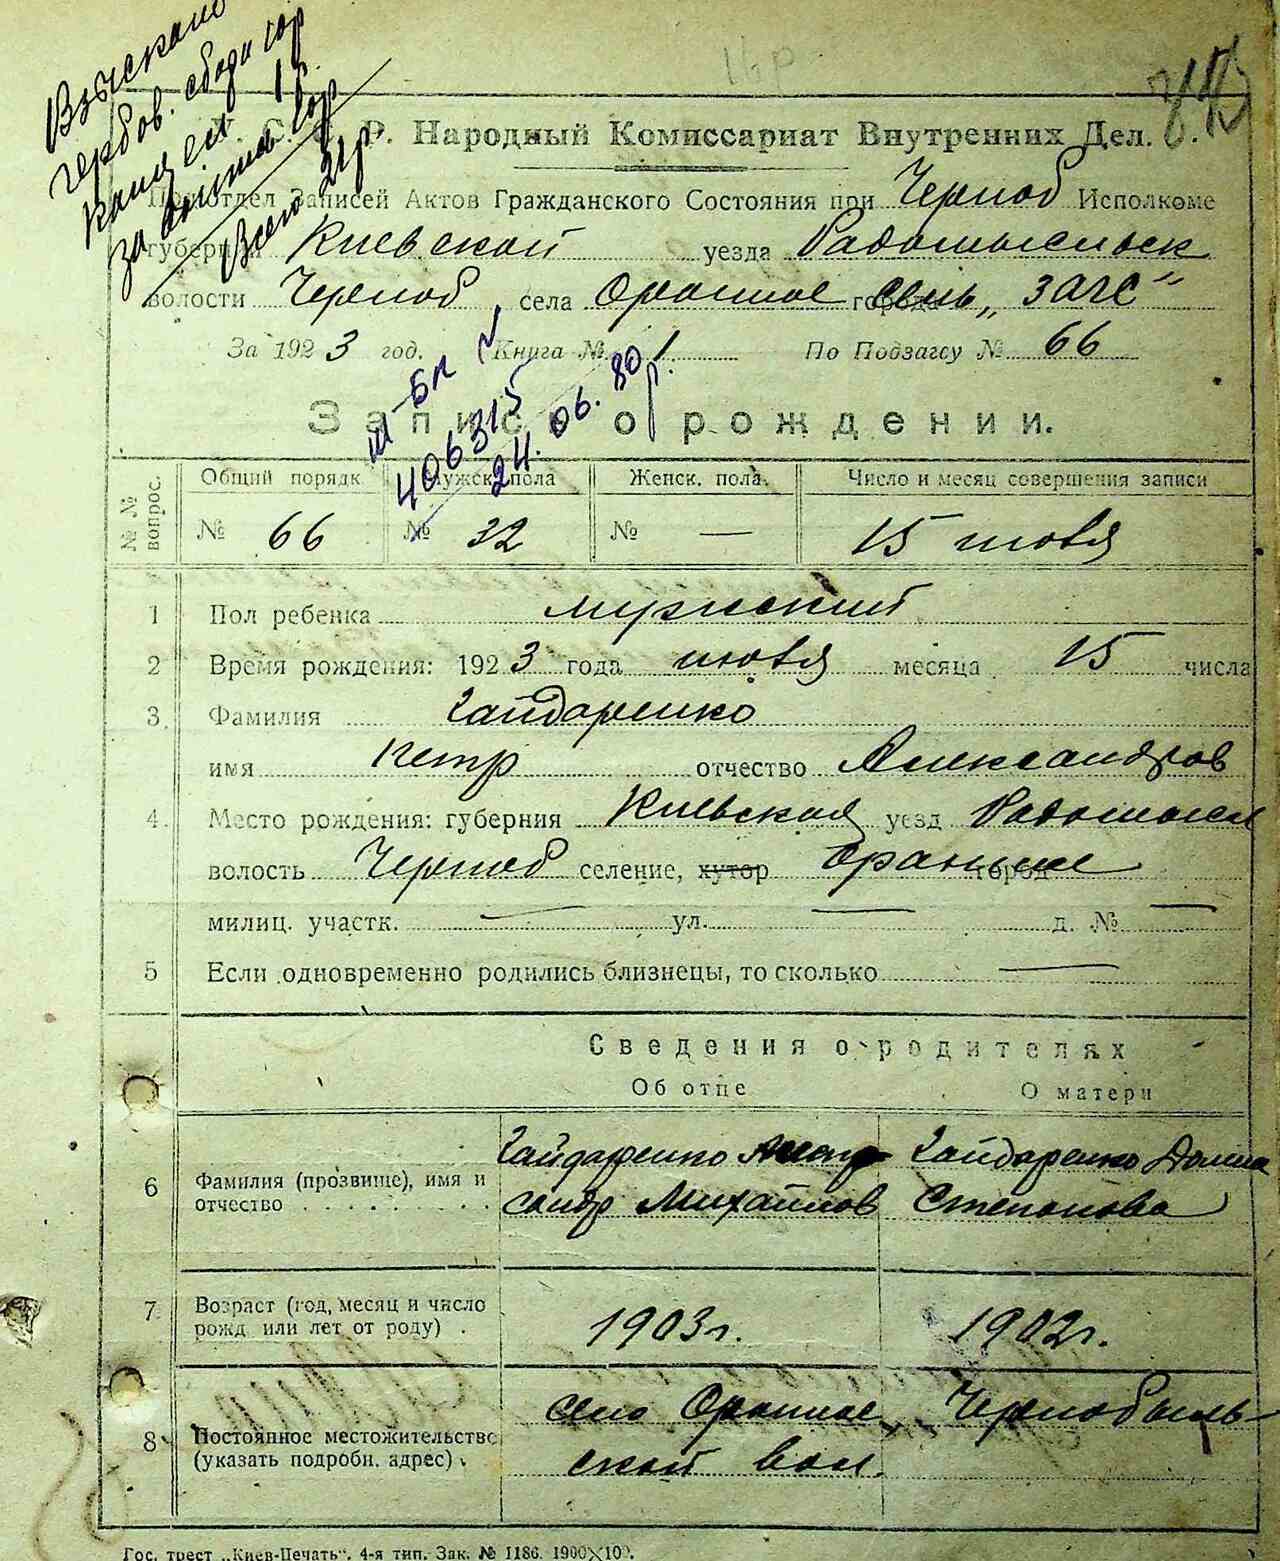 Взыскано
гербов. сбора
канц
за
Всего 21р
16р
С. Р. Народный Комиссариат Внутренних Дел.
Подотдел Записей Актов Гражданского Состояния при Черноб Исполкоме
губернии Киевской уезда Радомысльск
волости Черноб села Оранное города „ЗАГС"
За 1923 год. Книга № 1 По Подзагсу № 66
III-БК
406315
24.06.80р.
Запись о рождении.
№№ вопрос.
Общий порядк Мужск. пола Женск. пола. Число и месяц совершения записи
№ 66 № 32 № — 15 июля
1 Пол ребенка мужский
2 Время рождения: 1923 года июля месяца 15 числа
3. Фамилия Гайдаренко
имя Петр отчество Александров
4. Место рождения: губерния Киевская уезд Радомысл
волость Черноб селение, хутор город Оранное
милиц. участк. — ул. — д. № —
5 Если одновременно родились близнецы, то сколько —
Сведения о родителях
Об отце О матери
6 Фамилия (прозвище), имя и отчество
Гайдаренко Алек
сандр Михайлов
Гайдаренко Домна
Степанова
7 Возраст (год, месяц и число
рожд. или лет от роду) . 1903г. 1902г.
8 Постоянное местожительство
(указать подробн. адрес).
село Оранное, Чернобыль-
ской вол.
Гос. трест „Киев-Печать". 4-я тип. Зак. № 1186. 1900×100.